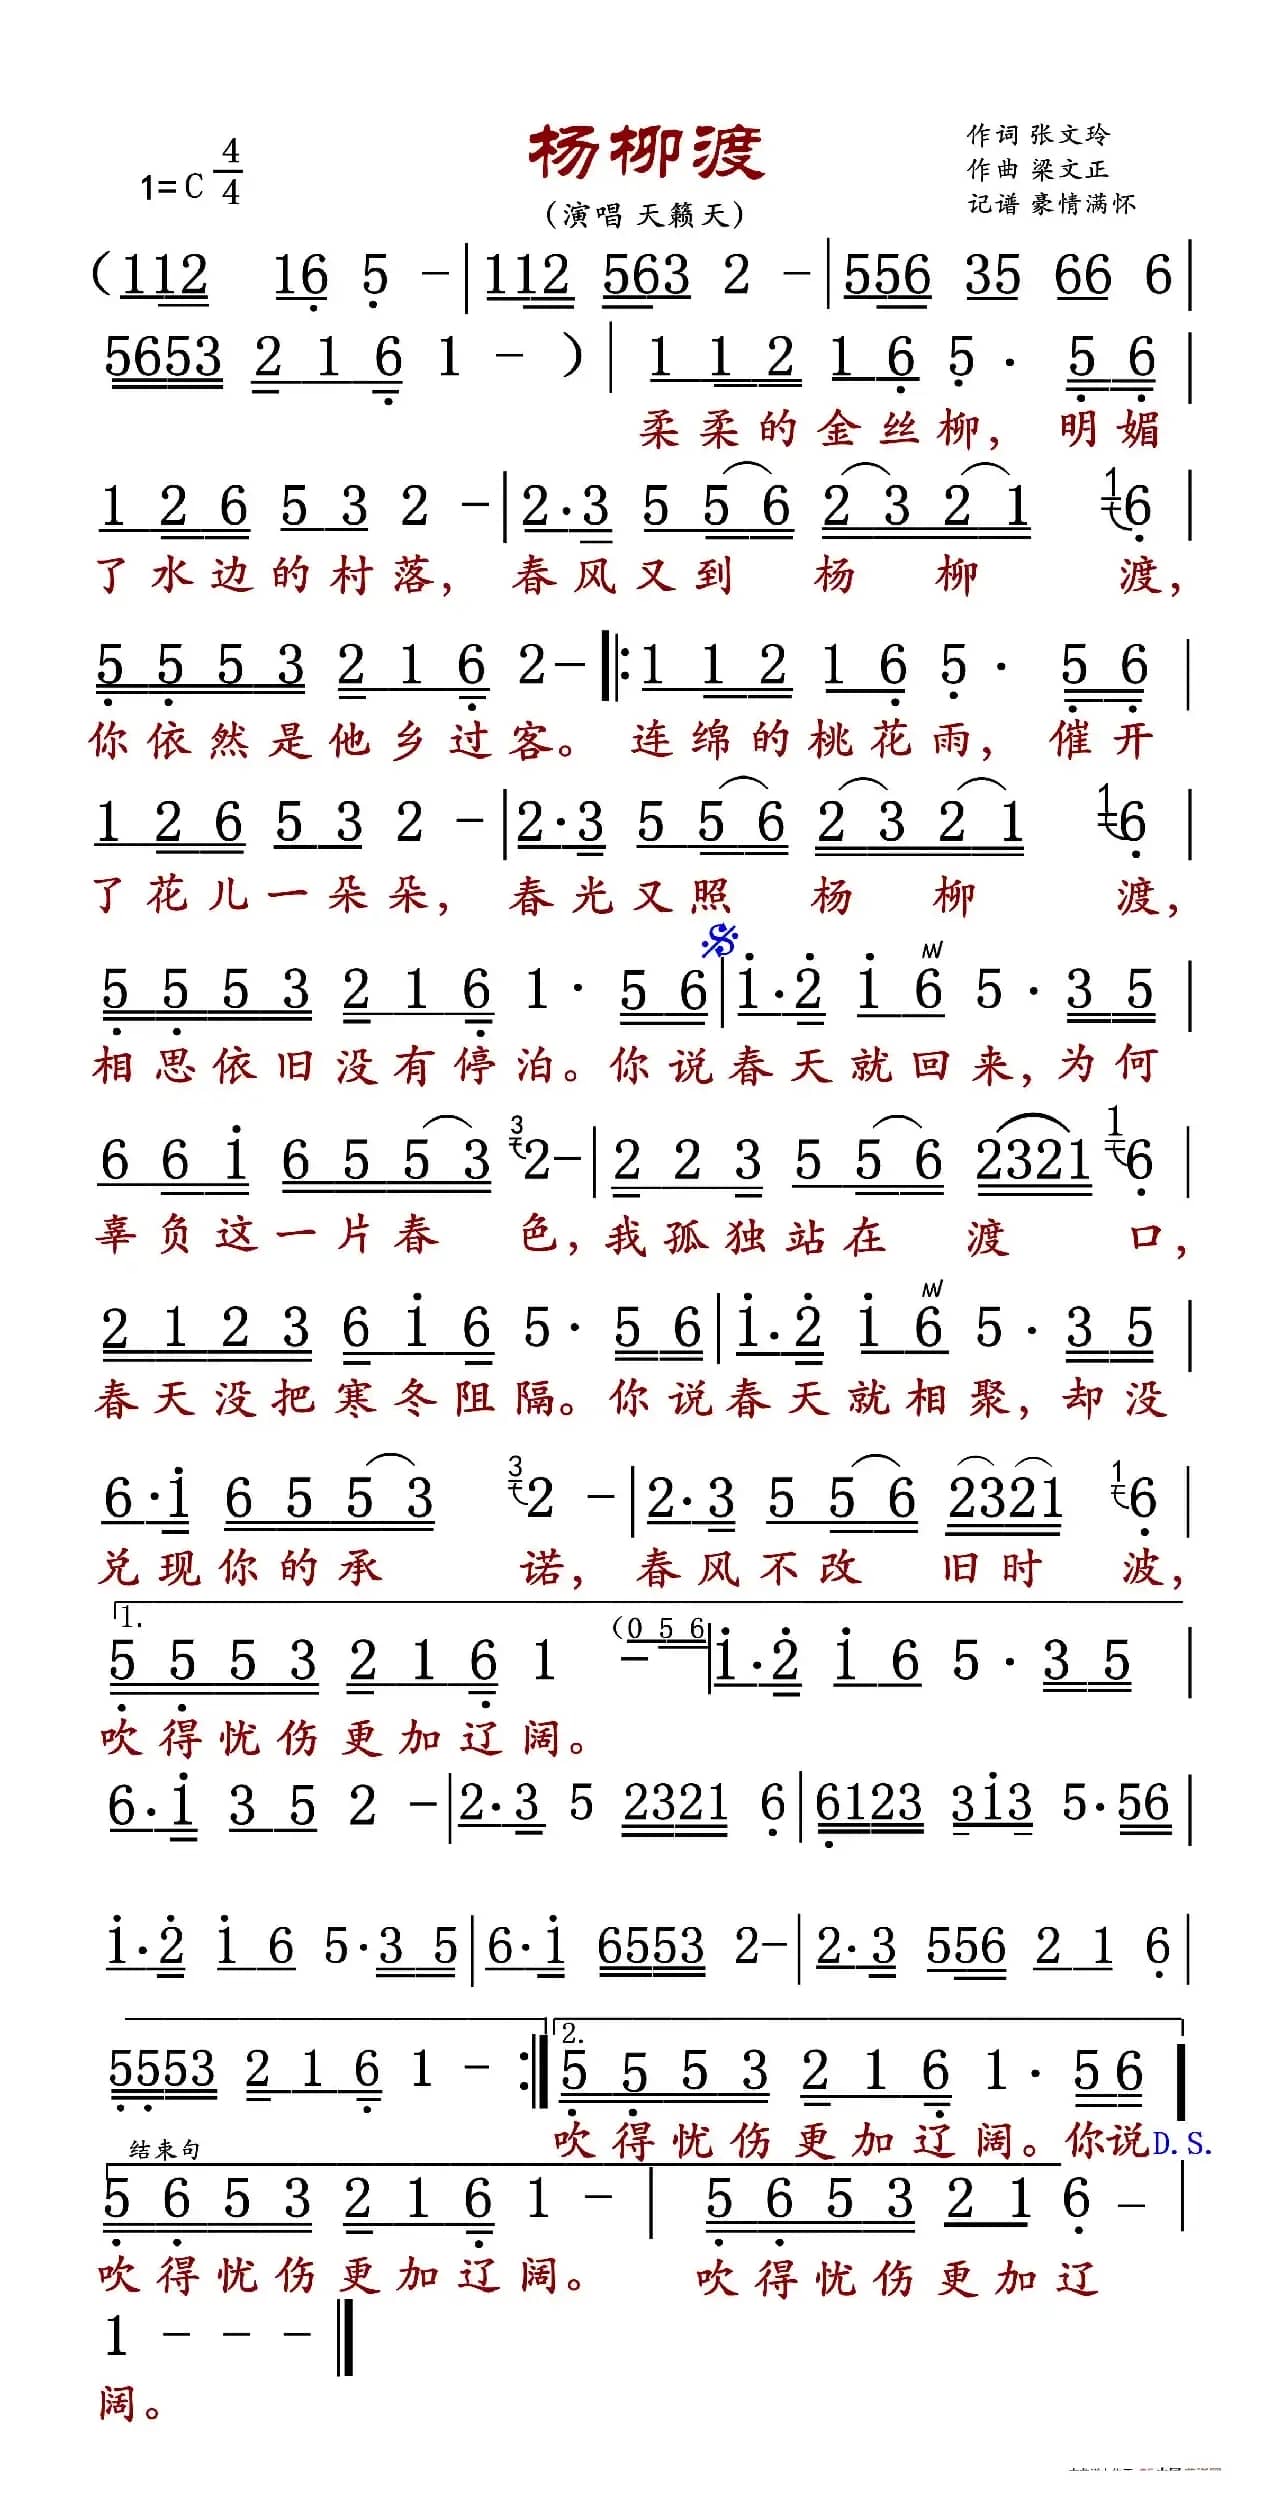 杨柳渡
1=C 4/4
(演唱 天籁天)
作词 张文玲
作曲 梁文正
记谱 豪情满怀
(112 16 5 - | 112 563 2 - | 556 35 66 6 |
5653 2 1 6 1 - ) | 1 1 2 1 6 5 · 5 6 |
柔柔的金丝柳，明媚
1 2 6 5 3 2 - | 2·3 5 5 6 2 3 2 1 1 6 |
了水边的村落，春风又到杨柳渡，
5 5 5 3 2 1 6 2 - |: 1 1 2 1 6 5 · 5 6 |
你依然是他乡过客。连绵的桃花雨，催开
1 2 6 5 3 2 - | 2·3 5 5 6 2 3 2 1 1 6 |
了花儿一朵朵，春光又照杨柳渡，
5 5 5 3 2 1 6 1 · 5 6 | 1·2 1 6 5 · 3 5 |
相思依旧没有停泊。你说春天就回来，为何
6 6 1 6 5 5 3 3 2 - | 2 2 3 5 5 6 2321 1 6 |
辜负这一片春色，我孤独站在渡口，
2 1 2 3 6 1 6 5 · 5 6 | 1·2 1 6 5 · 3 5 |
春天没把寒冬阻隔。你说春天就相聚，却没
6·1 6 5 5 3 3 2 - | 2·3 5 5 6 2321 1 6 |
兑现你的承诺，春风不改旧时波，
1.
5 5 5 3 2 1 6 1 - (0 5 6 | 1·2 1 6 5 · 3 5 |
吹得忧伤更加辽阔。
6·1 3 5 2 - | 2·3 5 2321 6 | 6123 313 5·56 |
1·2 1 6 5·3 5 | 6·1 6553 2 - | 2·3 556 2 1 6 |
2.
5553 2 1 6 1 - :| 5 5 5 3 2 1 6 1 · 5 6 |
吹得忧伤更加辽阔。你说 D.S.
结束句
5 6 5 3 2 1 6 1 - | 5 6 5 3 2 1 6 - |
吹得忧伤更加辽阔。吹得忧伤更加辽
1 - - - ‖
阔。